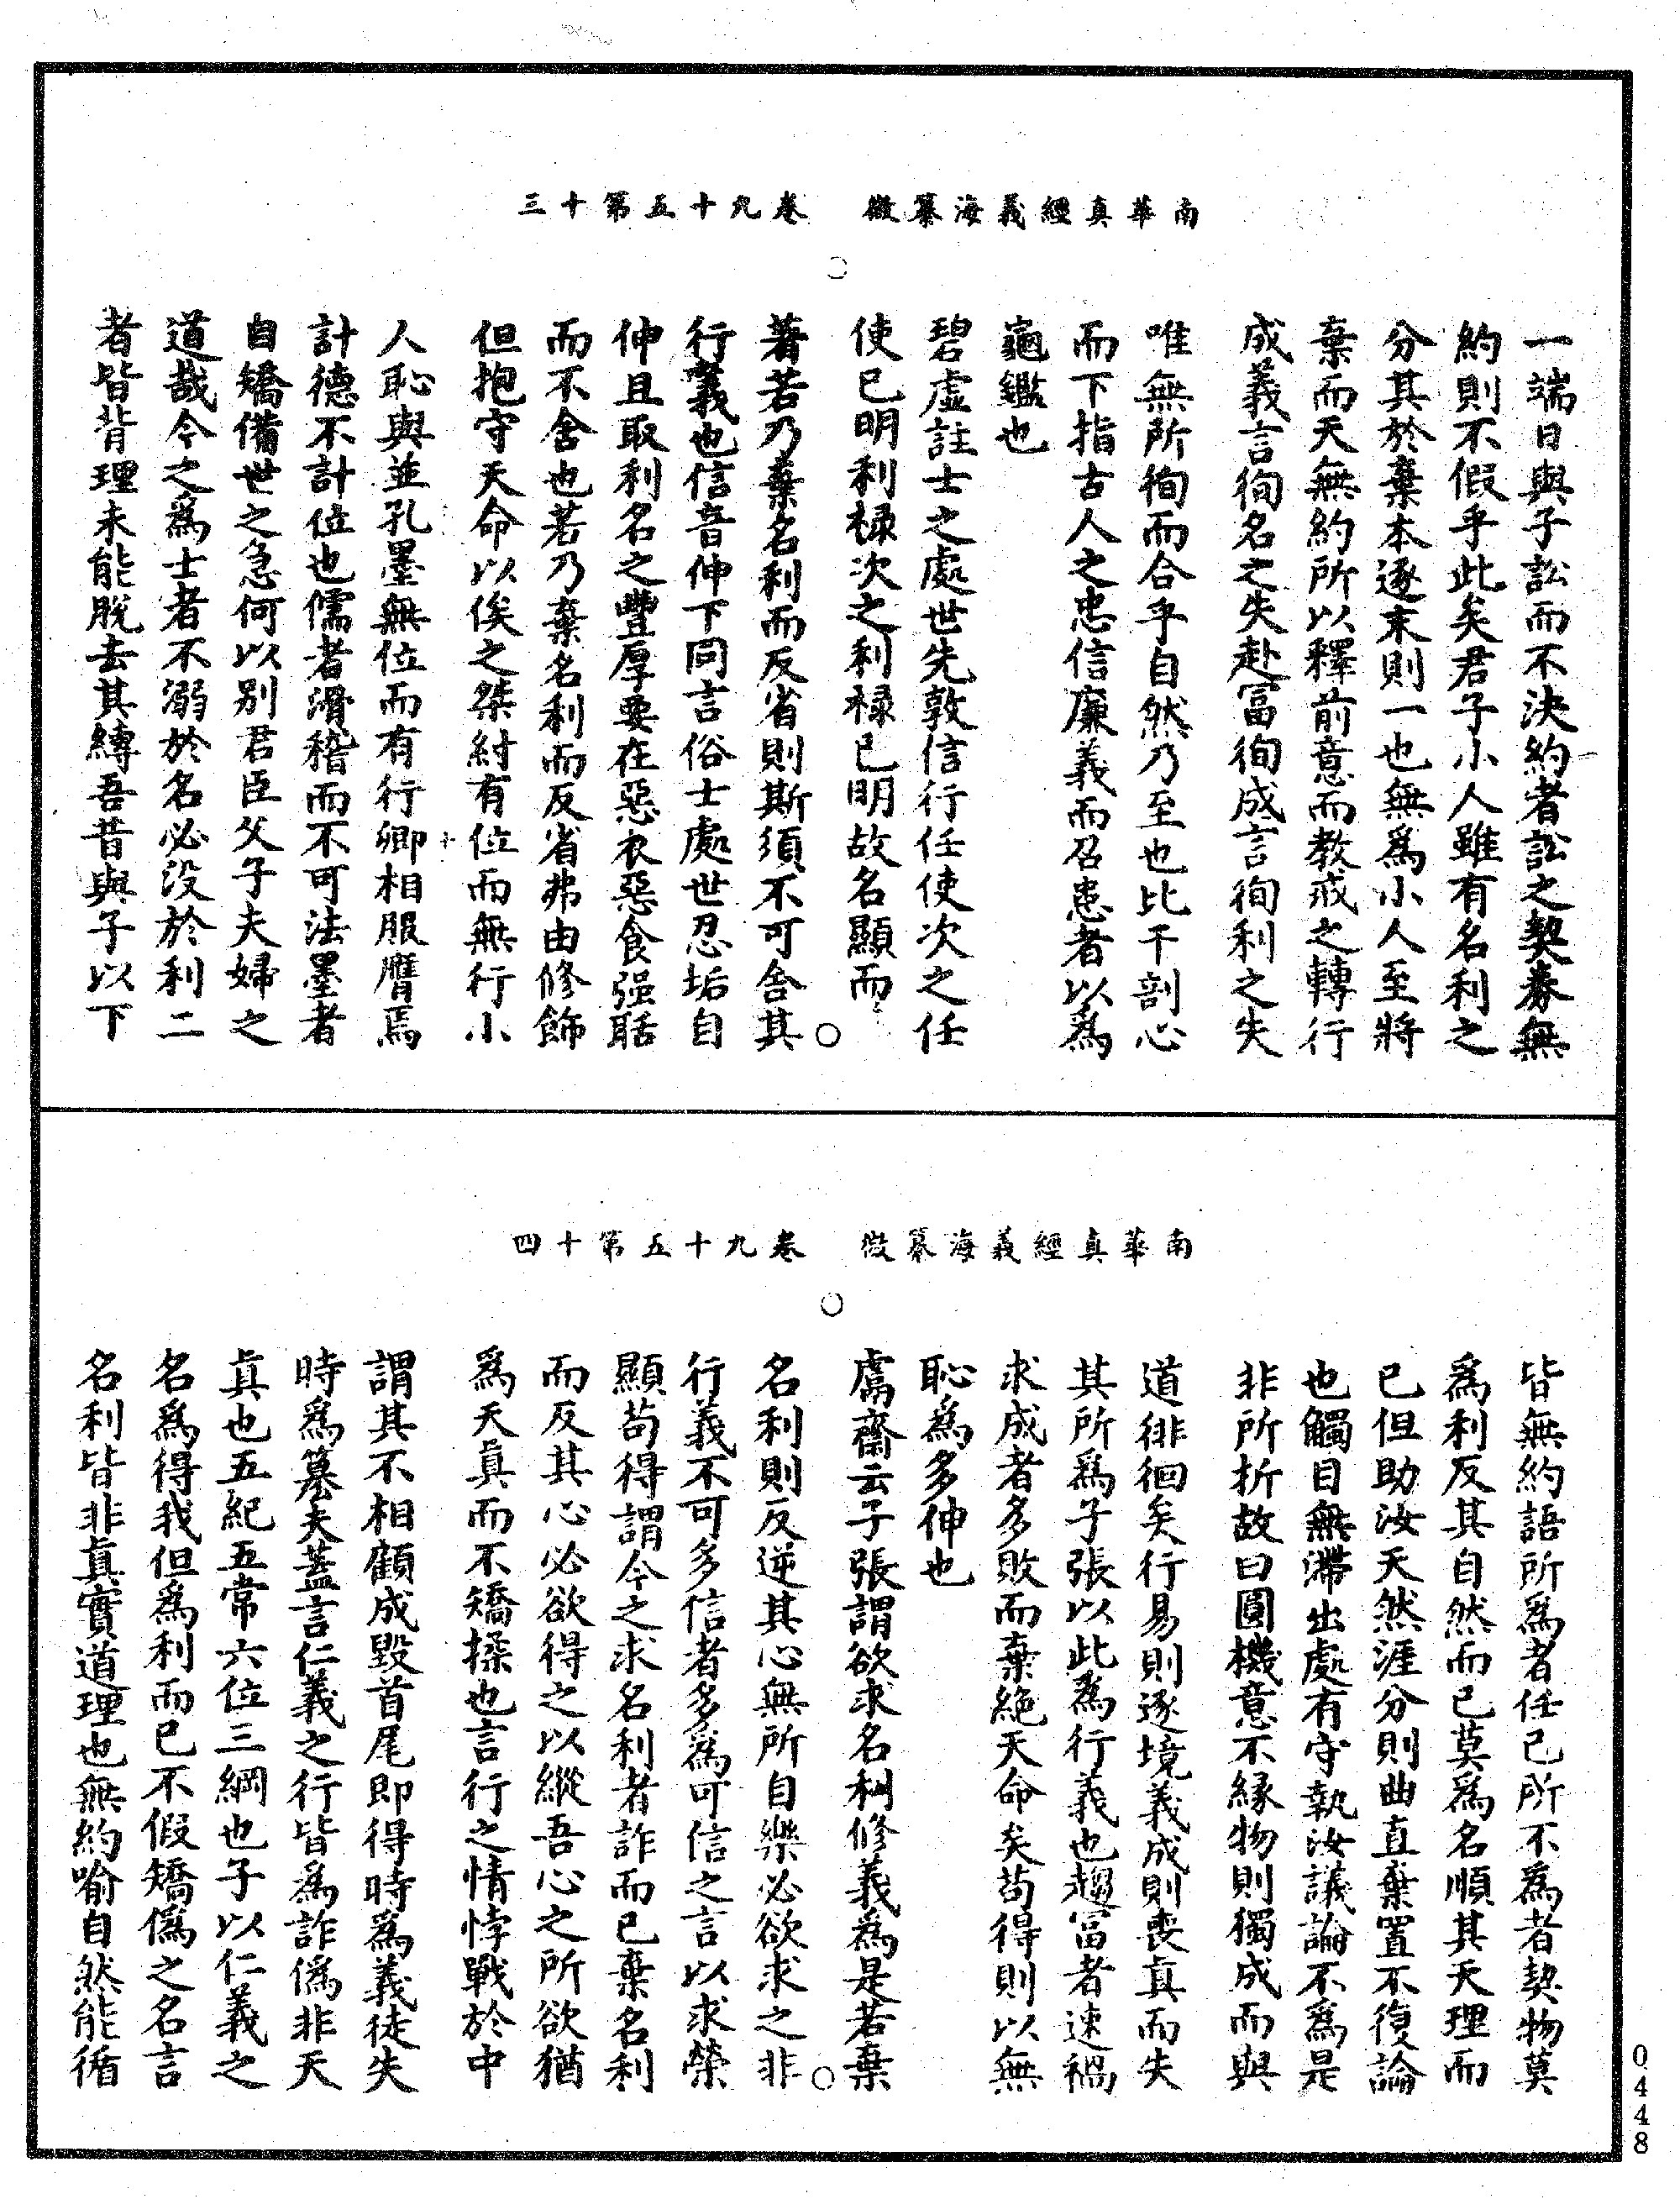 南華真經義海纂微　卷九十五第十三
一端日與子訟而不決約者訟之契券無
約則不假乎此矣君子小人雖有名利之
分其於棄本逐末則一也無爲小人至將
棄而天無約所以釋前意而教戒之轉行
成義言徇名之失赴冨徇成言徇利之失
唯無所徇而合乎自然乃至也比干剖心
而下指古人之忠信廉義而召患者以爲
龜鑑也
碧虛註士之處世先敦信行任使次之任
使已明利祿次之利祿已明故名顯而
著若乃棄名利而反省則斯須不可舍其
行義也信音伸下同言俗士處世忍垢自
伸且取利名之豐厚要在惡衣惡食强聒
而不舍也若乃棄名利而反省弗由修飾
但抱守天命以俟之桀紂有位而無行小
人恥與並孔墨無位而有行卿相服膺焉
計德不計位也儒者滑稽而不可法墨者
自矯備世之急何以別君臣父子夫婦之
道哉今之爲士者不溺於名必沒於利二
者皆背理未能脫去其縛吾昔與子以下
南華真經義海纂微　卷九十五第十四
皆無約語所爲者任已所不為者契物莫
爲利反其自然而已莫爲名順其天理而
已但助汝天然涯分則曲直棄置不復論
也觸目無滯出處有守執汝議論不爲是
非所折故曰圓機意不緣物則獨成而與
道徘徊矣行易則逐境義成則喪真而失
其所爲子張以此為行義也趨冨者速禍
求成者多敗而棄絶天命矣苟得則以無
恥為多伸也
鬳齋云子張謂欲求名利修義為是若棄
名利則反逆其心無所自樂必欲求之非
行義不可多信者多為可信之言以求榮
顯苟得謂今之求名利者詐而已棄名利
而反其心必欲得之以縱吾心之所欲猶
爲天真而不矯揉也言行之情悖戰於中
謂其不相顧成毀首尾即得時為義徒失
時爲篡夫蓋言仁義之行皆爲詐僞非天
真也五紀五常六位三綱也子以仁義之
名爲得我但爲利而已不假矯僞之名言
名利皆非真實道理也無約喻自然能循
0448